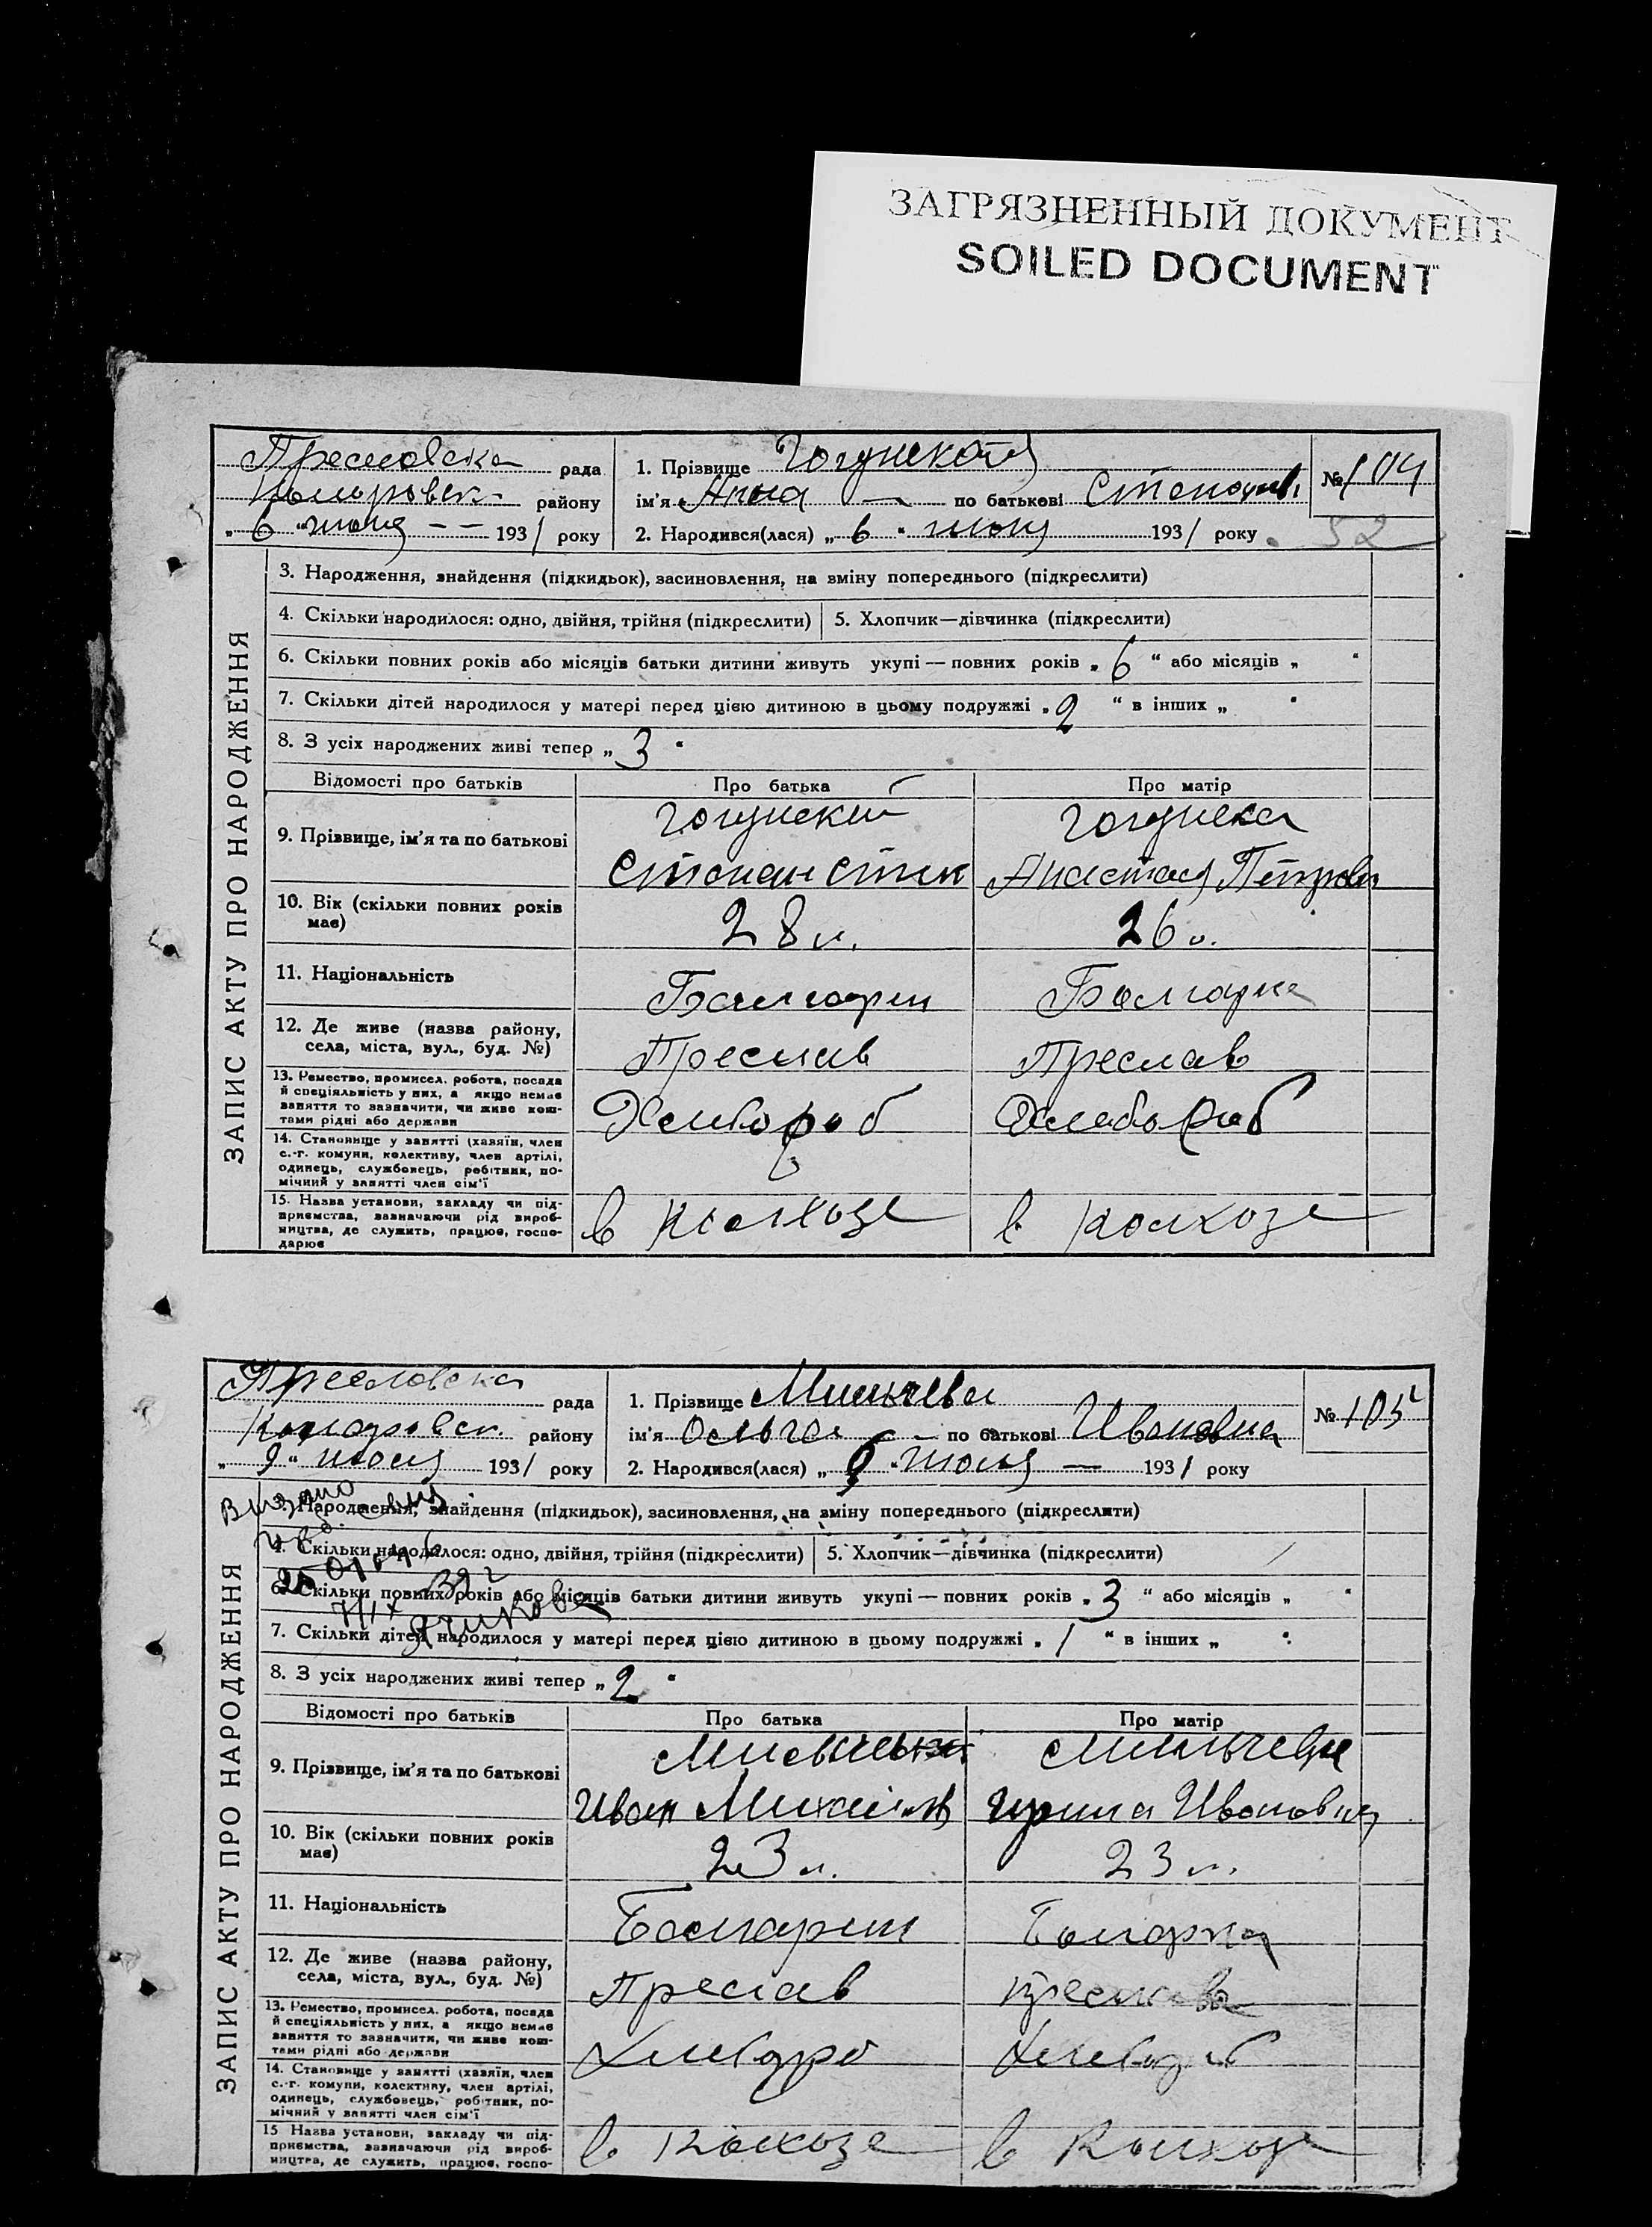 ЗАГРЯЗНЕННЫЙ ДОКУМЕНТ
SOILED DOCUMENT
ЗАПИС АКТУ ПРО НАРОДЖЕННЯ
Преславска рада
району
„6“ 1931 року
1. Прізвище
ім'я Анна — по батькові
2. Народився(лася) „6“ 1931 року
№ 104
52
3. Народження, знайдення (підкидьок), засиновлення, на зміну попереднього (підкреслити)
4. Скільки народилося: одно, двійня, трійня (підкреслити) 5. Хлопчик—дівчинка (підкреслити)
6. Скільки повних років або місяців батьки дитини живуть укупі — повних років „6“ або місяців „ “
7. Скільки дітей народилося у матері перед цією дитиною в цьому подружжі „2“ в інших „ “
8. З усіх народжених живі тепер „3“
Відомості про батьків Про батька Про матір
9. Прізвище, ім'я та по батькові
Гогунский Гогунска
Степан Степ Анастасия Петровн
10. Вік (скільки повних років має) 28 л. 26 л.
11. Національність Балгарин Болгарка
12. Де живе (назва району, села, міста, вул., буд. №) Преслав Преслав
13. Ремество, промисел, робота, посада й спеціяльність у них, а якщо немає заняття то зазначити, чи живе коштами рідні або держави Хлебороб Хлебороб
14. Становище у занятті (хазяїн, член с.-г. комуни, колективу, член артілі, одинець, службовець, робітник, помічний у занятті член сім'ї
15. Назва установи, закладу чи підприємства, зазначаючи рід виробництва, де служить, працює, господарює в колхозе в колхозе
ЗАПИС АКТУ ПРО НАРОДЖЕННЯ
Преславска рада
району
„9“ июля 1931 року
1. Прізвище Мильчева
ім'я Ольга — по батькові Ивановна
2. Народився(лася) „ “ июля — 1931 року
№ 105
3. Народження, знайдення (підкидьок), засиновлення, на зміну попереднього (підкреслити)
4. Скільки народилося: одно, двійня, трійня (підкреслити) 5. Хлопчик—дівчинка (підкреслити)
6. Скільки повних років або місяців батьки дитини живуть укупі — повних років „3“ або місяців „ “
7. Скільки дітей народилося у матері перед цією дитиною в цьому подружжі „1“ в інших „ “
8. З усіх народжених живі тепер „2“
Відомості про батьків Про батька Про матір
9. Прізвище, ім'я та по батькові
Мильчева
Иван Михайлов Ирина Ивановна
10. Вік (скільки повних років має) 23 л. 23 л.
11. Національність Болгарин Болгарка
12. Де живе (назва району, села, міста, вул., буд. №) Преслав
13. Ремество, промисел, робота, посада й спеціяльність у них, а якщо немає заняття то зазначити, чи живе коштами рідні або держави
14. Становище у занятті (хазяїн, член с.-г. комуни, колективу, член артілі, одинець, службовець, робітник, помічний у занятті член сім'ї
15. Назва установи, закладу чи підприємства, зазначаючи рід виробництва, де служить, працює, госпо- в колхозе в колхозе